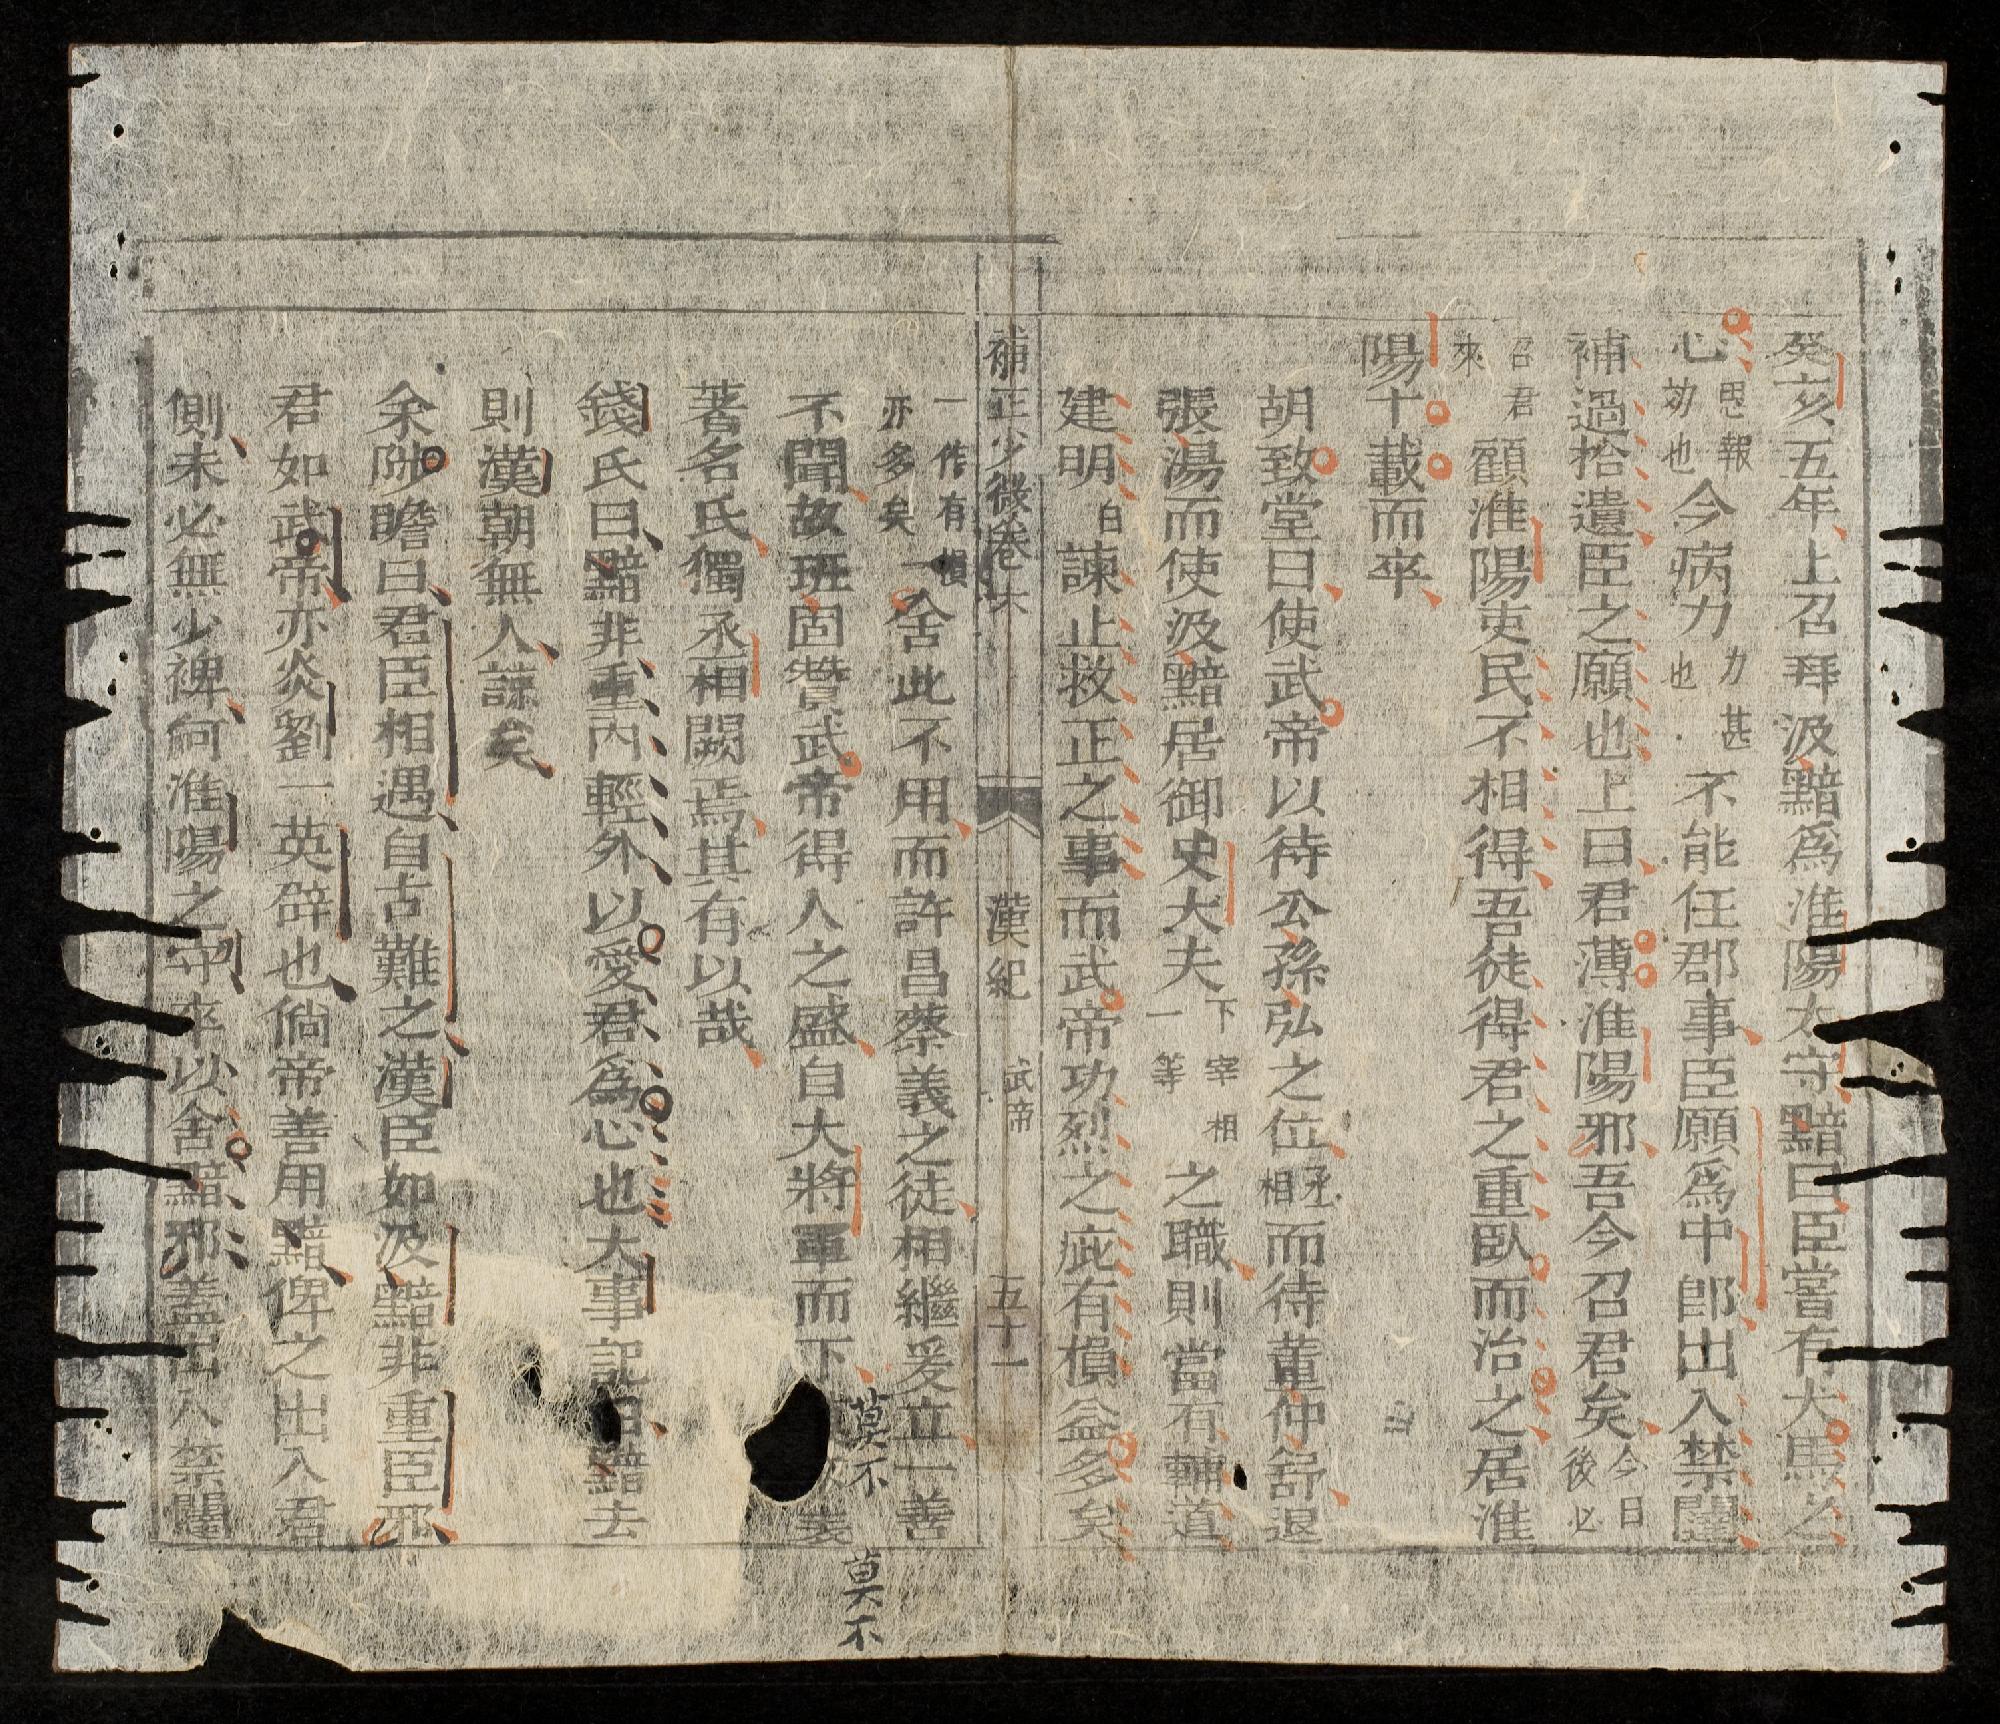 癸亥五年上召拜汲黯爲淮陽太守黯曰臣嘗有犬馬之
心恩報効也今病力力甚也不能任郡事臣願爲中郎出入禁闥
補過拾遺臣之願也上曰君薄淮陽邪吾今召君矣今日後必
召君來顧淮陽吏民不相得吾徒得君之重臥而治之居淮
陽十載而卒
胡致堂曰使武帝以待公孫弘之位丞相而待董仲舒退
張湯而使汲黯居御史大夫下宰相一等之職則當有輔道
建明白諫止救正之事而武帝功烈之疵有損益多矣
一作有損亦多矣舍此不用而許昌蔡義之徒相繼爰立一善
不聞故班固贊武帝得人之盛自大將軍而下莫不表表
著名氏獨丞相闕焉其有以哉
錢氏曰黯非重內輕外以愛君爲心也大事記曰黯去
則漢朝無人諫矣
余陟瞻曰君臣相遇自古難之漢臣如汲黯非重臣邪
君如武帝亦炎劉一英辟也倘帝善用黯俾之出入君
側未必無少裨何淮陽之守卒以舍黯邪蓋出入禁闥
補正少微卷六
漢紀
武帝
五十一
莫不
莫不